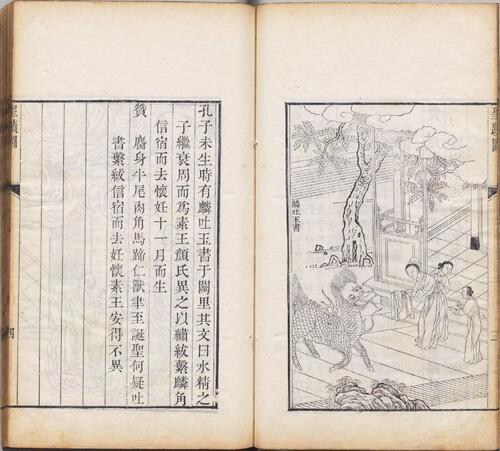 聖蹟圖
麟吐玉書
孔子未生時有麟吐玉書于闕里其文曰水精之
子繼衰周而為素王顏氏異之以繡紱繫麟角
信宿而去懷妊十一月而生
贊 麕身牛尾肉角馬蹄仁獸聿至誕聖何疑吐
書繫紱信宿而去妊懷素王安得不異
聖蹟圖
四